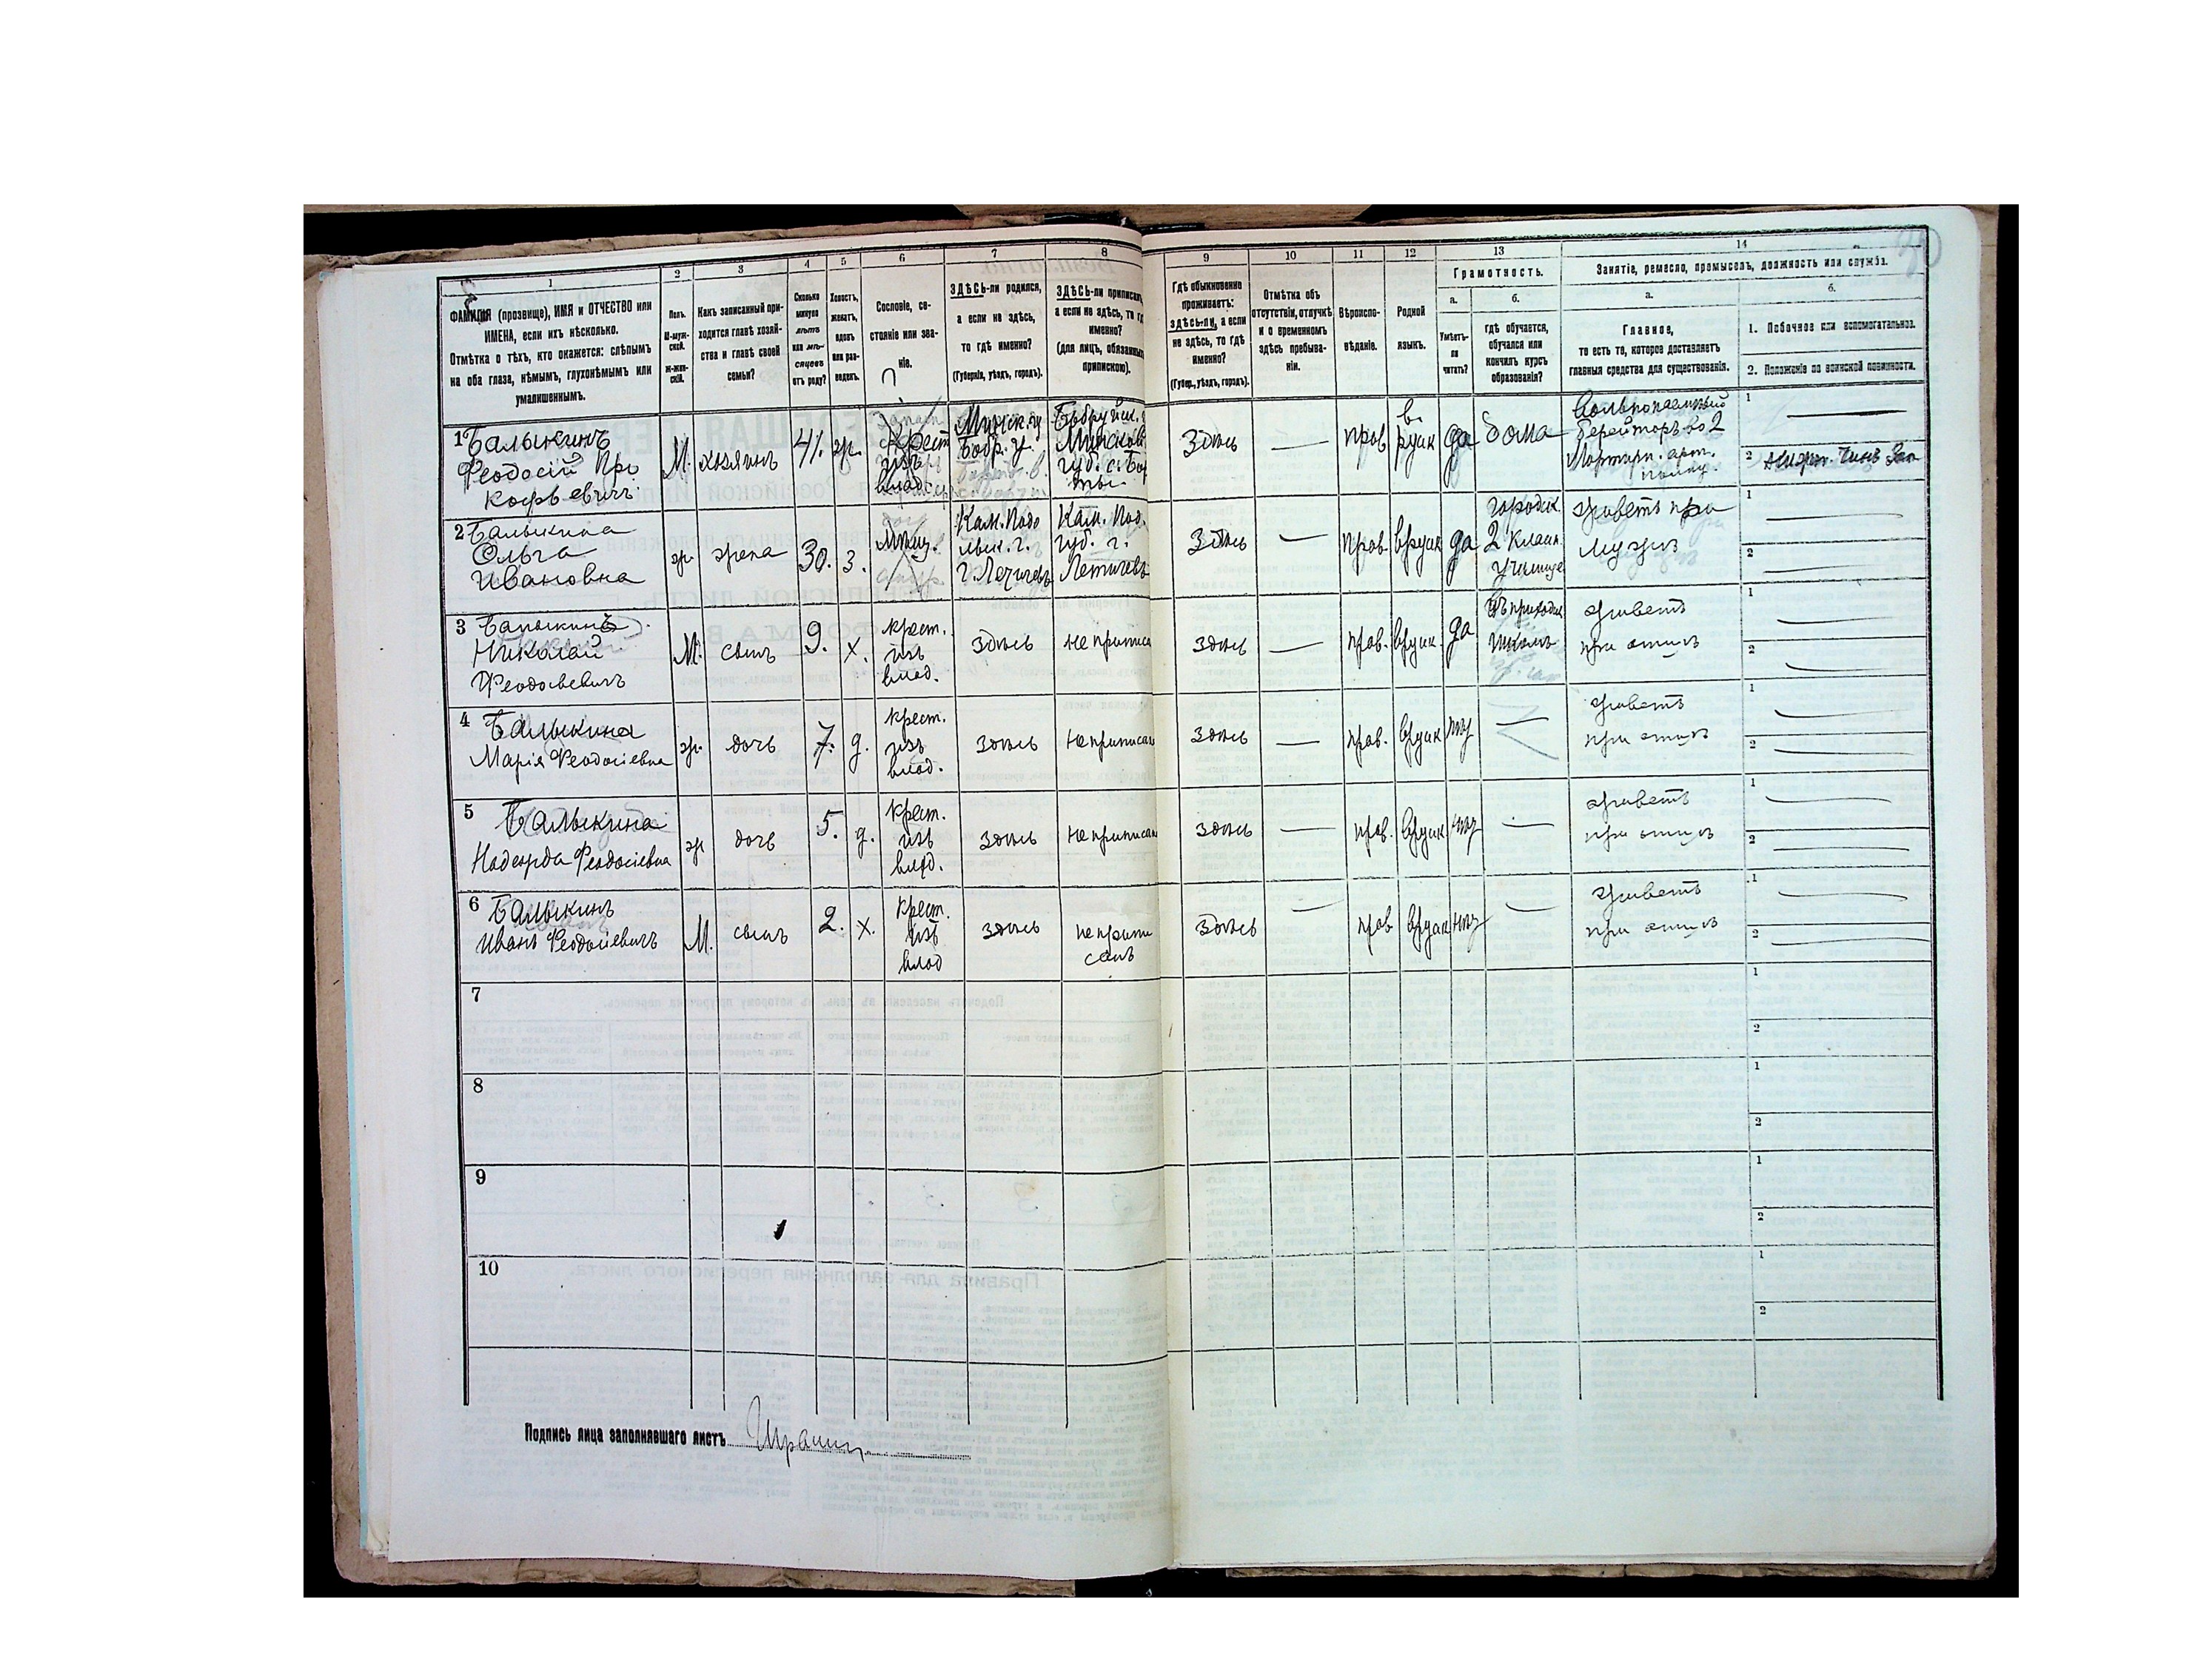 1
2
3
4
5
6
7
8
9
10
11
12
13
14
ФАМИЛІЯ (прозвище), ИМЯ и ОТЧЕСТВО или
ИМЕНА, если ихъ нѣсколько.
Отмѣтка о тѣхъ, кто окажется: слѣпымъ
на оба глаза, нѣмымъ, глухонѣмымъ или
умалишеннымъ.
Полъ.
М-муж-
ской.
ж-жен-
скій.
Какъ записанный при-
ходится главѣ хозяй-
ства и главѣ своей
семьи?
Сколько
минуло
лѣтъ
или мѣ-
сяцевъ
отъ роду?
Холостъ,
женатъ,
вдовъ
или раз-
веденъ.
Сословіе, со-
стояніе или зва-
ніе.
ЗДѢСЬ-ли родился,
а если не здѣсь,
то гдѣ именно?
(Губернія, уѣздъ, городъ).
ЗДѢСЬ-ли приписанъ,
а если не здѣсь, то гдѣ
именно?
(для лицъ, обязанныхъ
припискою).
Гдѣ обыкновенно
проживаетъ:
здѣсь-ли, а если
не здѣсь, то гдѣ
именно?
(Губер., уѣздъ, городъ).
Отмѣтка объ
отсутствіи, отлучкѣ
и о временномъ
здѣсь пребыва-
ніи.
Вѣроиспо-
вѣданіе.
Родной
языкъ.
Грамотность.
а.
Умѣетъ-
ли
читать?
б.
гдѣ обучается,
обучался или
кончилъ курсъ
образованія?
Занятіе, ремесло, промыселъ, должность или служба.
а.
Главное,
то есть то, которое доставляетъ
главныя средства для существованія.
б.
1. Побочное или вспомогательное.
2. Положеніе по воинской повинности.
1 Балыкинъ
Феодосій Про
кофьевичъ
М. хозяинъ 41. ж.
Крест
изъ
влад.
Минск. гу
Бобр. у.
Бобруйск.
Минской
губ.
Здѣсь — прав в. руск да дома
Вольнонаемный
Берейторъ во 2
Мортирн. арт.
полку.
1 —
2 Нижн. Чинъ Зап
2 Балыкина
Ольга
Ивановна
ж. жена 30. з. Мѣщ.
Кам. Подо
льск. г.
г. Летичевъ
Кам. Под.
губ. г.
Летичевъ
Здѣсь — прав. вруск да
городск.
2 класн.
училище
живетъ при
мужѣ
1 —
2 —
3 Балыкинъ
Николай
Феодосьевичъ
М. сынъ 9. х.
крест.
изъ
влад.
здѣсь не приписа
здѣсь — прав. вруск. да
въ приходск
школѣ
живетъ
при отцѣ
1 —
2 —
4 Балыкина
Марія Феодосіевна
ж. дочь 7. д.
крест.
изъ
влад.
здѣсь не приписан
здѣсь — прав. вруск нѣт —
живетъ
при отцѣ
1 —
2 —
5 Балыкина
Надежда Феодосіевна
ж дочь 5. д.
крест.
изъ
влад.
здѣсь не приписан
здѣсь — прав. вруск нѣт —
живетъ
при отцѣ
1 —
2 —
6 Балыкинъ
Иванъ Феодосіевичъ
М. сынъ 2. х.
крест.
изъ
влад
здѣсь не припи
санъ
здѣсь — прав вруск нѣт —
живетъ
при отцѣ
1 —
2 —
7
1
2
8
1
2
9
1
2
10
1
2
Подпись лица заполнявшаго листъ